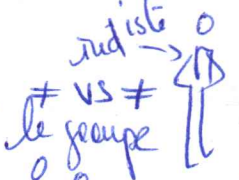 indiste
≠ vs ≠
le groupe